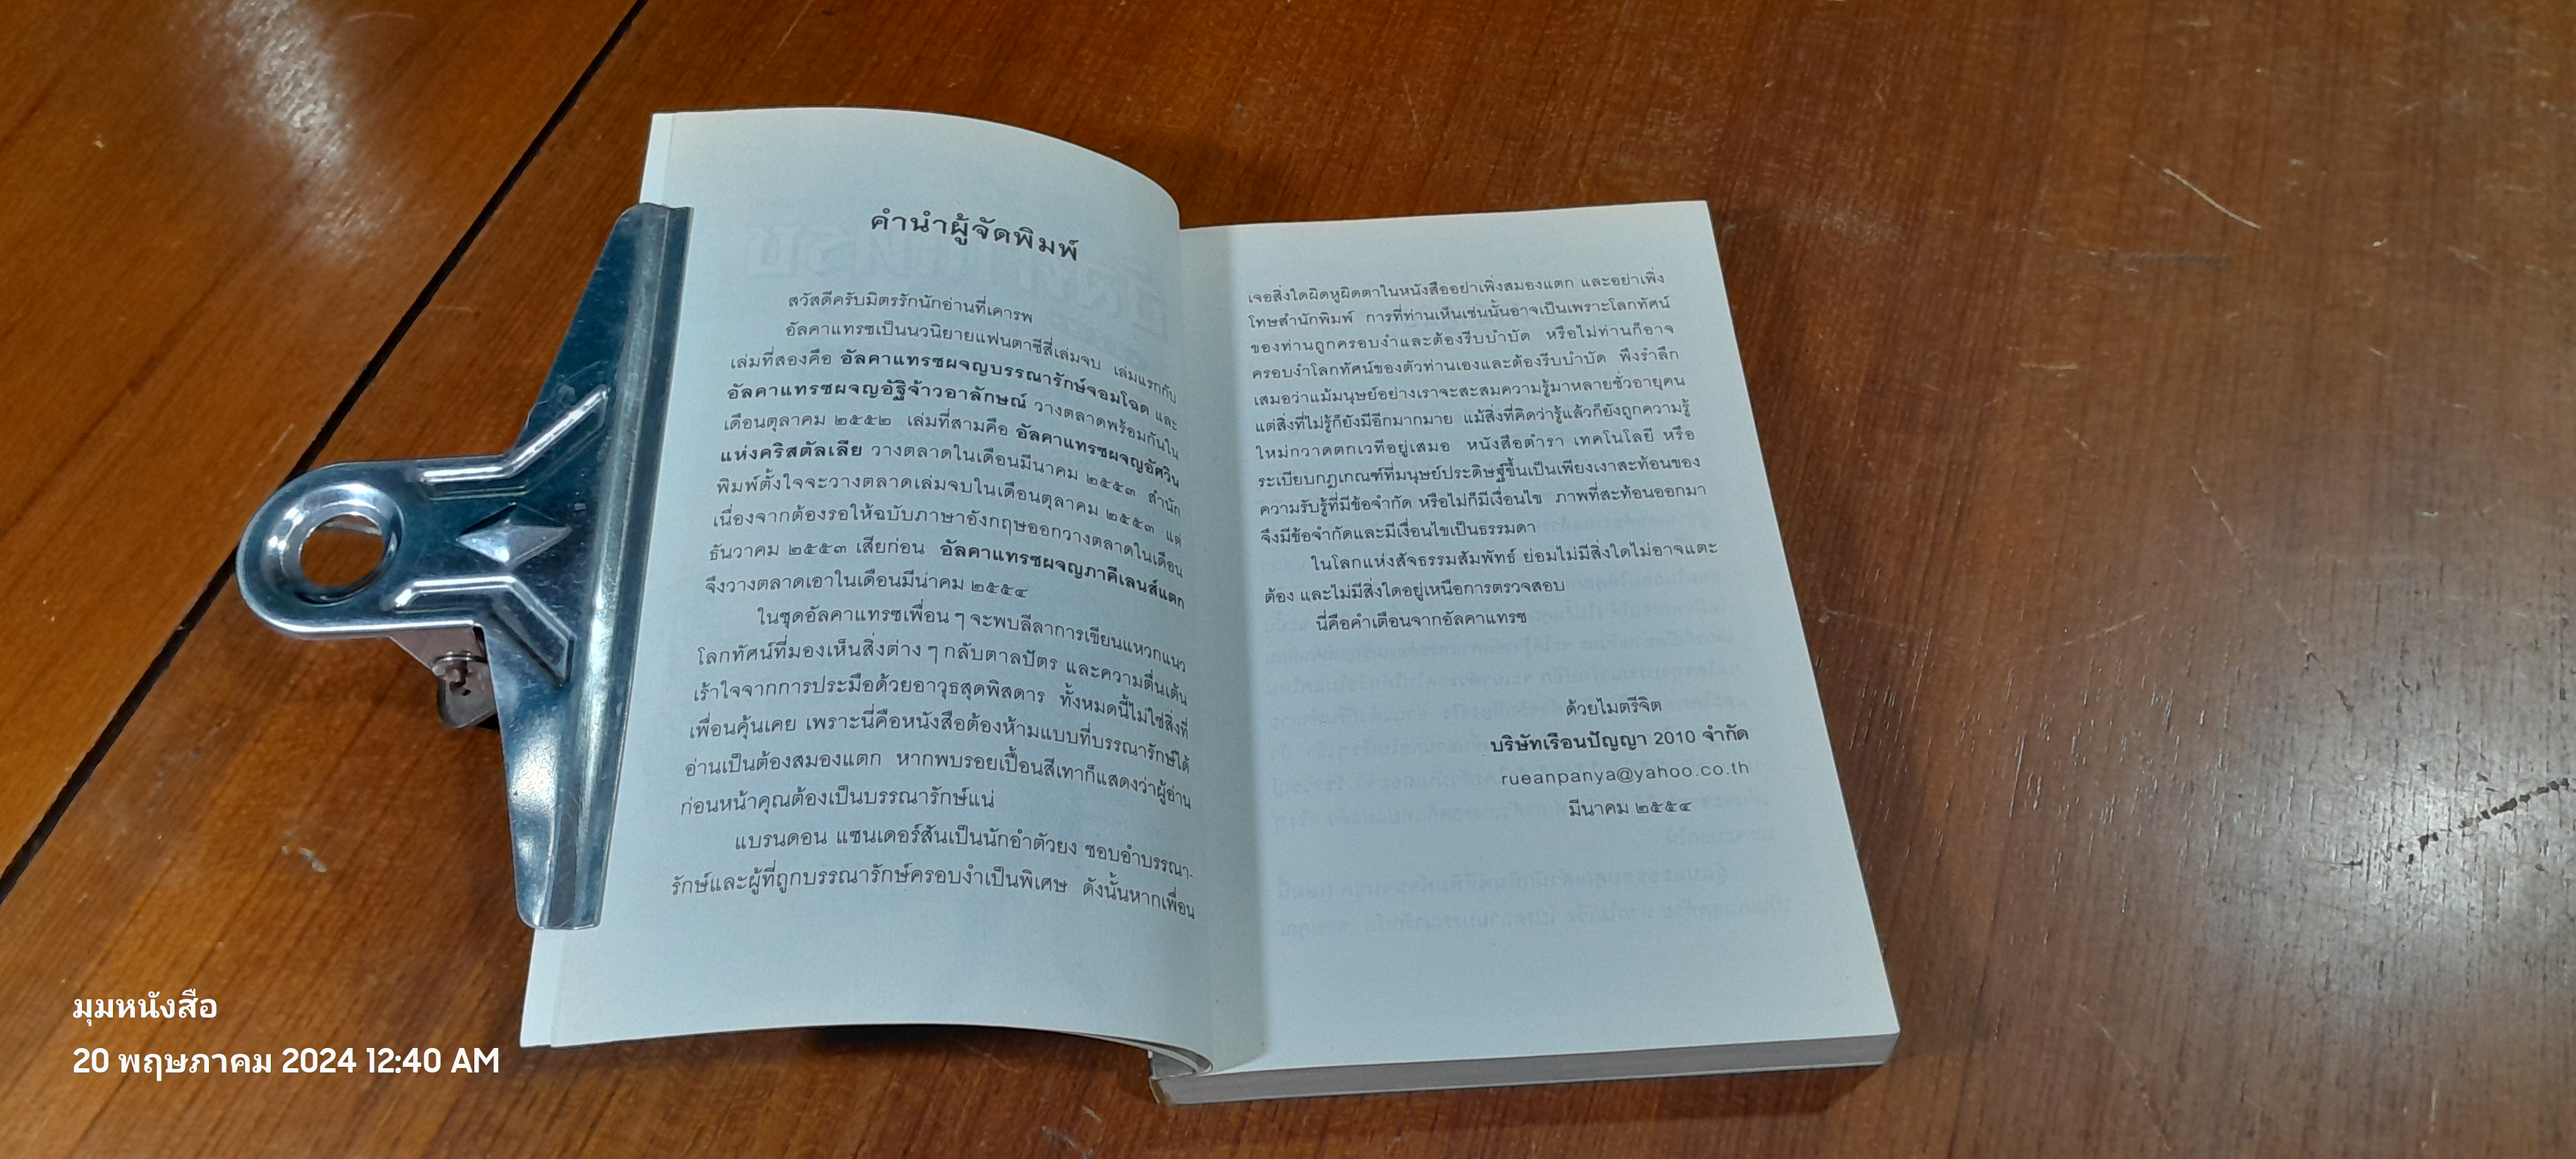 คำนำผู้จัดพิมพ์
สวัสดีครับมิตรรักนักอ่านที่เคารพ
อัลคาแทรซเป็นนวนิยายแฟนตาซีสี่เล่มจบ เล่มแรกกับ
เล่มที่สองคือ อัลคาแทรซผจญบรรณารักษ์จอมโฉด และ
อัลคาแทรซผจญอัฐิจ้าวอาลักษณ์ วางตลาดพร้อมกันใน
เดือนตุลาคม ๒๕๕๒ เล่มที่สามคือ อัลคาแทรซผจญอัศวิน
แห่งคริสตัลเลีย วางตลาดในเดือนมีนาคม ๒๕๕๓ สำนัก
พิมพ์ตั้งใจจะวางตลาดเล่มจบในเดือนตุลาคม ๒๕๕๓ แต่
เนื่องจากต้องรอให้ฉบับภาษาอังกฤษออกวางตลาดในเดือน
ธันวาคม ๒๕๕๓ เสียก่อน อัลคาแทรซผจญภาคีเลนส์แตก
จึงวางตลาดเอาในเดือนมีนาคม ๒๕๕๔
ในชุดอัลคาแทรซเพื่อน ๆ จะพบลีลาการเขียนแหวกแนว
โลกทัศน์ที่มองเห็นสิ่งต่าง ๆ กลับตาลปัตร และความตื่นเต้น
เร้าใจจากการประมือด้วยอาวุธสุดพิสดาร ทั้งหมดนี้ไม่ใช่สิ่งที่
เพื่อนคุ้นเคย เพราะนี่คือหนังสือต้องห้ามแบบที่บรรณารักษ์ได้
อ่านเป็นต้องสมองแตก หากพบรอยเปื้อนสีเทาก็แสดงว่าผู้อ่าน
ก่อนหน้าคุณต้องเป็นบรรณารักษ์แน่
แบรนดอน แซนเดอร์สันเป็นนักอำตัวยง ชอบอำบรรณา-
รักษ์และผู้ที่ถูกบรรณารักษ์ครอบงำเป็นพิเศษ ดังนั้นหากเพื่อน
เจอสิ่งใดผิดหูผิดตาในหนังสืออย่าเพิ่งสมองแตก และอย่าเพิ่ง
โทษสำนักพิมพ์ การที่ท่านเห็นเช่นนั้นอาจเป็นเพราะโลกทัศน์
ของท่านถูกครอบงำและต้องรีบบำบัด หรือไม่ท่านก็อาจ
ครอบงำโลกทัศน์ของตัวท่านเองและต้องรีบบำบัด พึงรำลึก
เสมอว่าแม้มนุษย์อย่างเราจะสะสมความรู้มาหลายชั่วอายุคน
แต่สิ่งที่ไม่รู้ก็ยังมีอีกมากมาย แม้สิ่งที่คิดว่ารู้แล้วก็ยังถูกความรู้
ใหม่กวาดตกเวทีอยู่เสมอ หนังสือตำรา เทคโนโลยี หรือ
ระเบียบกฎเกณฑ์ที่มนุษย์ประดิษฐ์ขึ้นเป็นเพียงเงาสะท้อนของ
ความรับรู้ที่มีข้อจำกัด หรือไม่ก็มีเงื่อนไข ภาพที่สะท้อนออกมา
จึงมีข้อจำกัดและมีเงื่อนไขเป็นธรรมดา
ในโลกแห่งสัจธรรมสัมพัทธ์ ย่อมไม่มีสิ่งใดไม่อาจแตะ
ต้อง และไม่มีสิ่งใดอยู่เหนือการตรวจสอบ
นี่คือคำเตือนจากอัลคาแทรซ
ด้วยไมตรีจิต
บริษัทเรือนปัญญา 2010 จำกัด
rueanpanya@yahoo.co.th
มีนาคม ๒๕๕๔
มุมหนังสือ
20 พฤษภาคม 2024 12:40 AM